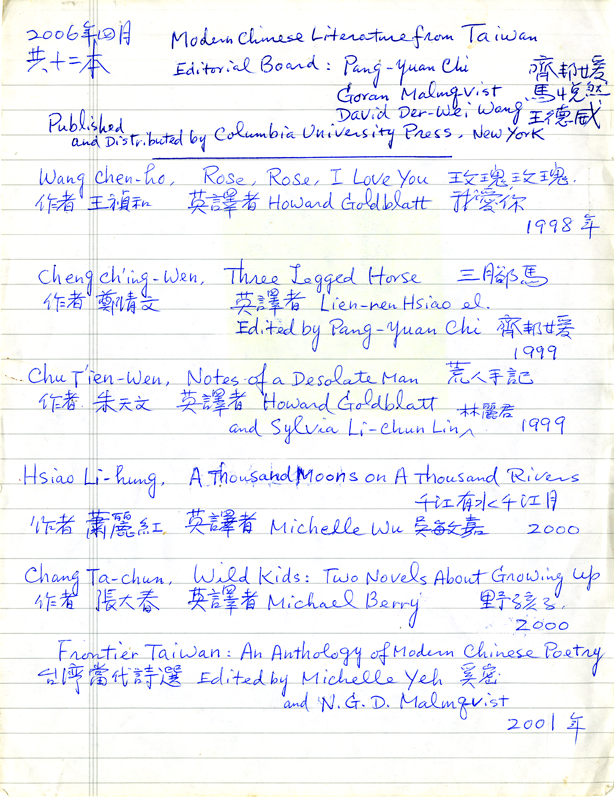 2006年四月 Modern Chinese Literature from Taiwan
共十二本 Editorial Board: Pang-Yuan Chi 齊邦媛
Goran Malmqvist 馬悅然
David Der-Wei Wang 王德威
Published
and Distributed by Columbia University Press, New York
Wang Chen-ho, Rose, Rose, I Love You 玫瑰玫瑰
作者 王禎和 英譯者 Howard Goldblatt 我愛你
1998 年
Cheng Ch'ing-Wen, Three Legged Horse 三腳馬
作者 鄭清文 英譯者 Lien-ren Hsiao el.
Edited by Pang-Yuan Chi 齊邦媛
1999
Chu T'ien-Wen, Notes of a Desolate Man 荒人手記
作者 朱天文 英譯者 Howard Goldblatt
and Sylvia Li-Chun Lin 林麗君 1999
Hsiao Li-hung, A Thousand Moons on A Thousand Rivers
千江有水千江月
作者 蕭麗紅 英譯者 Michelle Wu 吳敏嘉 2000
Chang Ta-chun, Wild Kids: Two Novels About Growing Up
作者 張大春 英譯者 Michael Berry 野孩子.
2000
Frontier Taiwan: An Anthology of Modern Chinese Poetry
台灣當代詩選 Edited by Michelle Yeh 奚密
and N.G.D. Malmqvist
2001 年